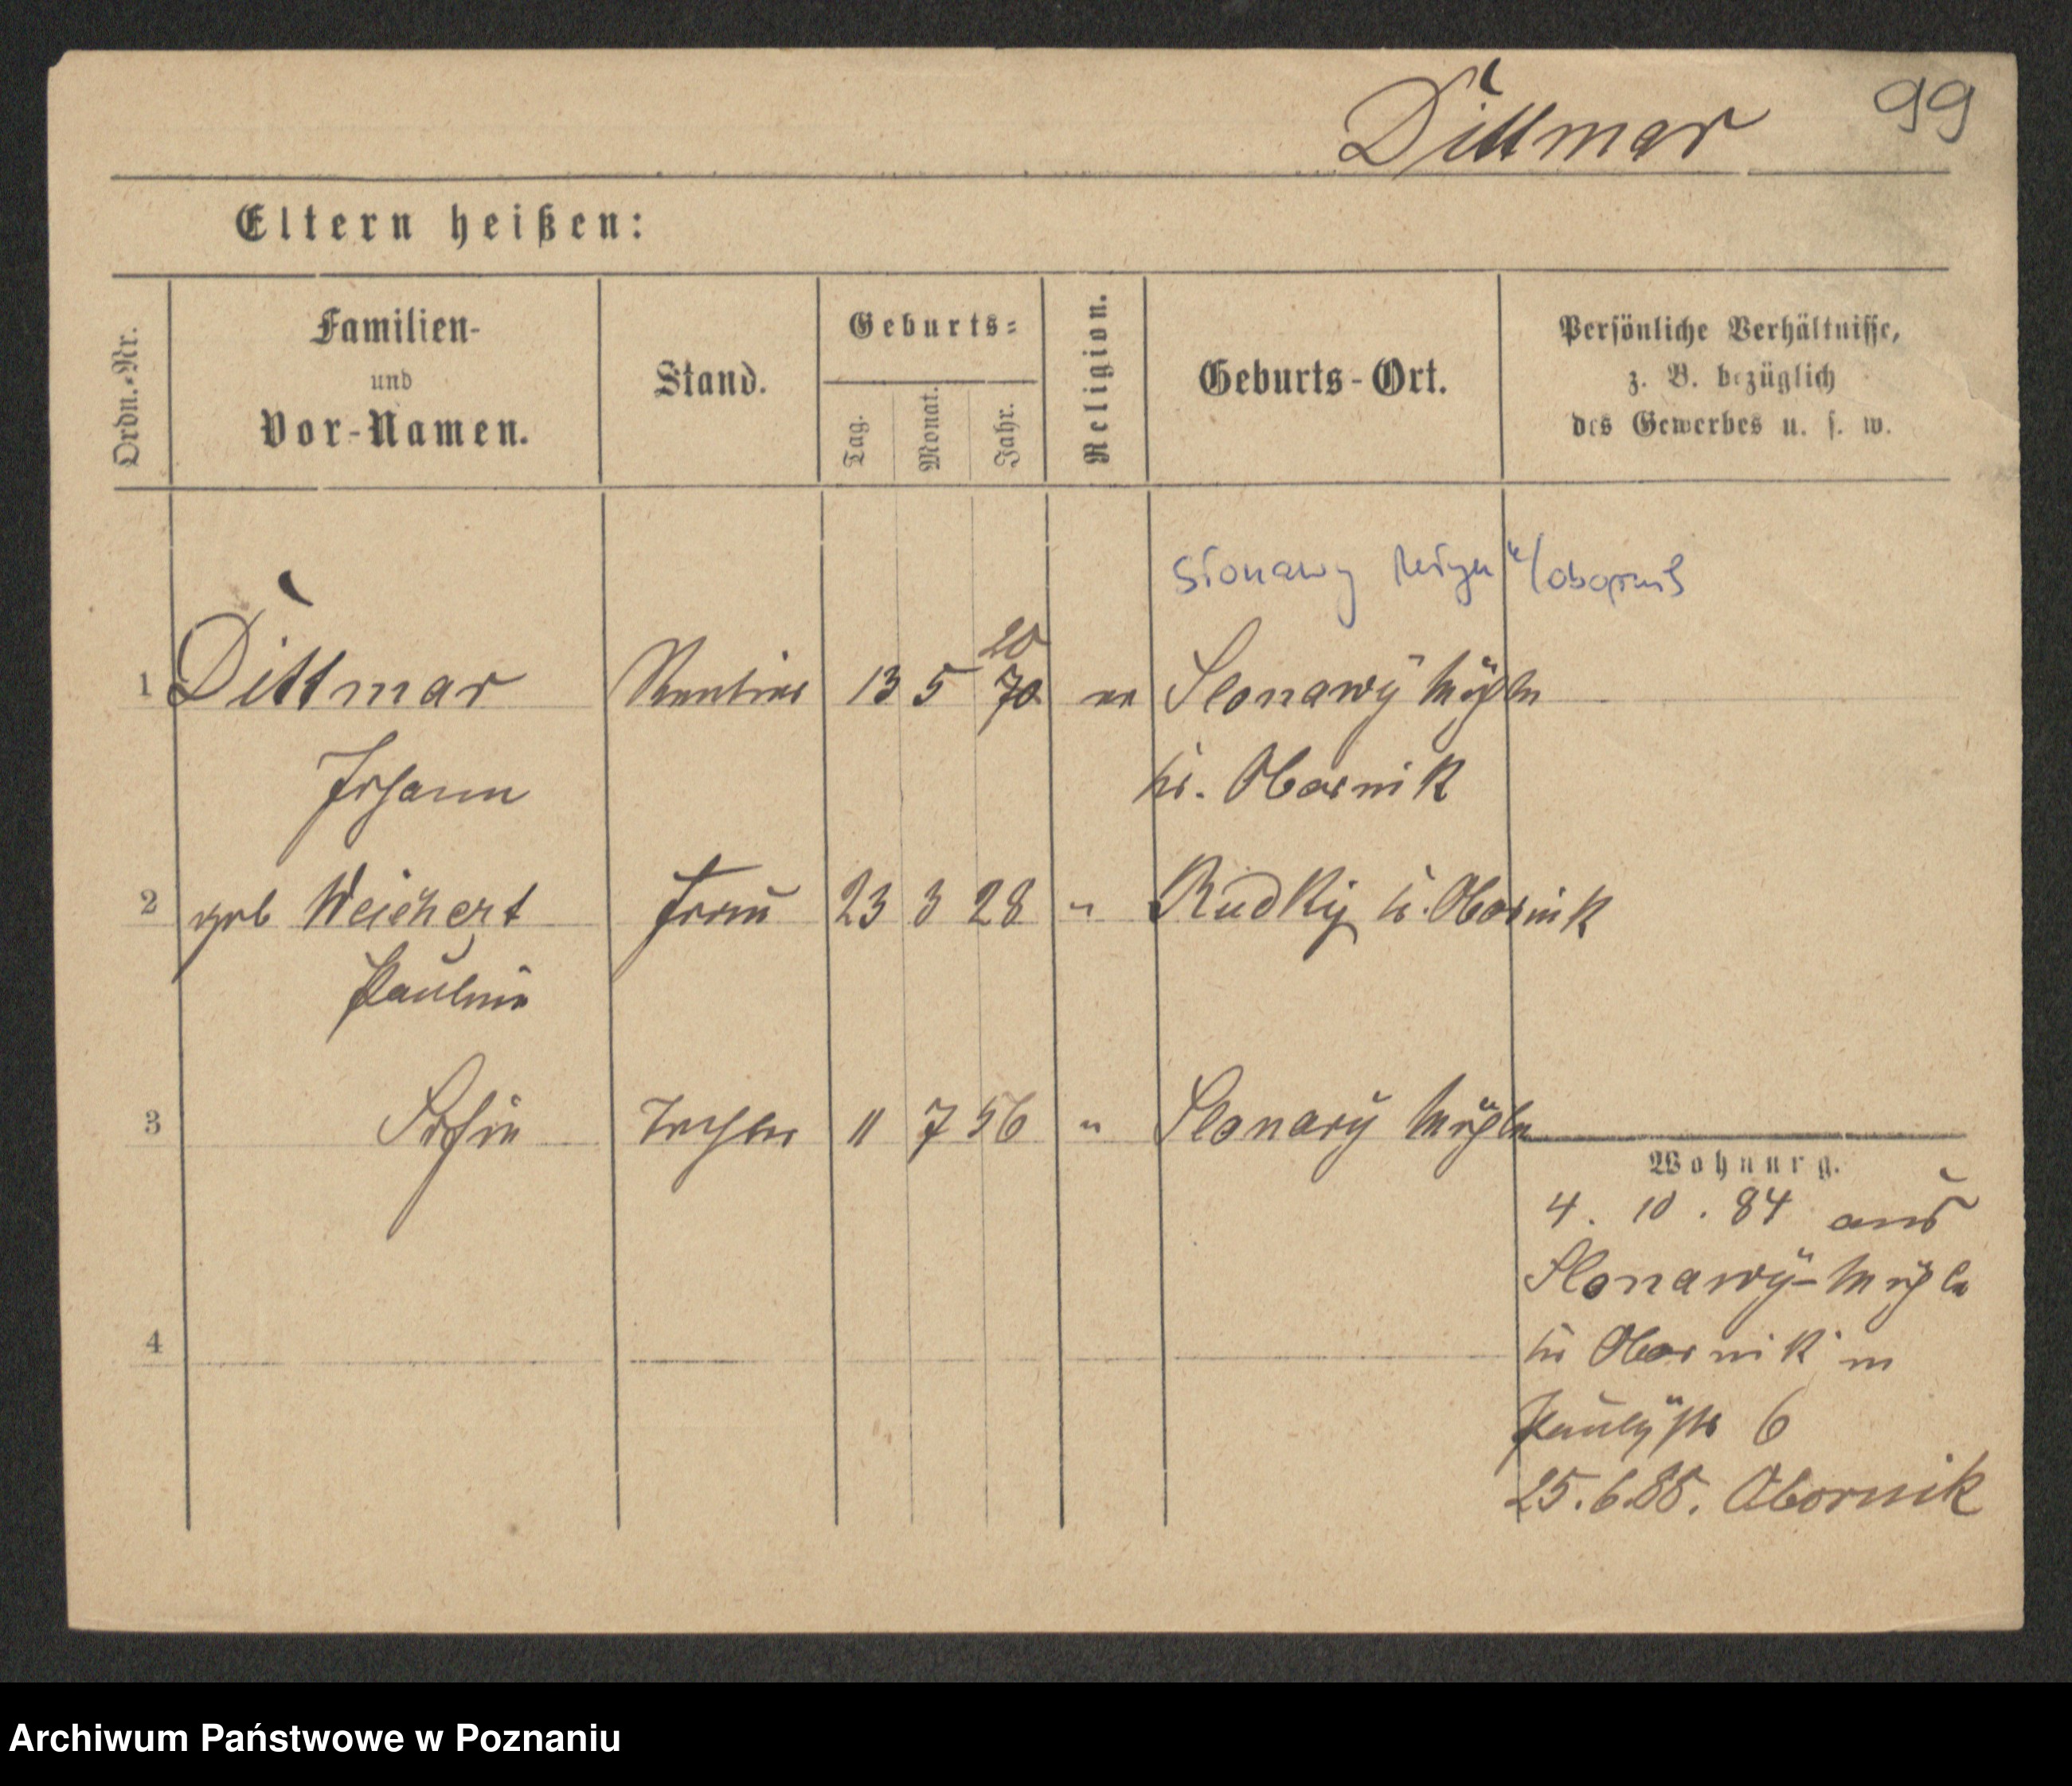 Dittmar
99
Eltern heißen:
Ordn.-Nr.
Familien-
und
Vor-Namen.
Stand.
Geburts-
Tag.
Monat.
Jahr.
Religion.
Geburts-Ort.
Persönliche Verhältnisse,
z. B. bezüglich
des Gewerbes u. s. w.
Slonawy
20
1 Dittmar Rentier 13 5 70 ev Slonawÿ Mühle
Johann kr. Obornik
2 geb Weichert Frau 23 3 28 " Rudky kr. Obornik
Pauline
3 Sofie Tochter 11 7 56 " Slonawÿ Mühle
Wohnung.
4. 10. 84 aus
Slonawÿ-Mühle
kr Obornik in
4
Paulystr 6
25.6.88. Obornik
Archiwum Państwowe w Poznaniu